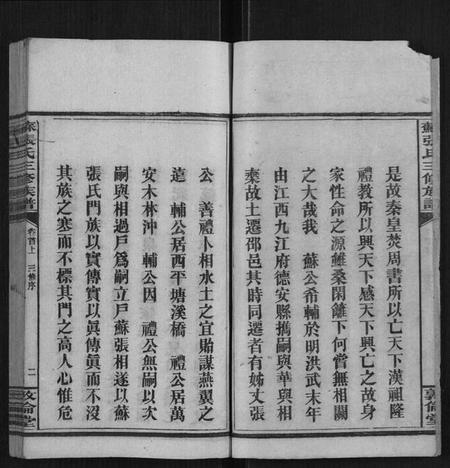 蘇張氏三修族譜
敦倫堂
是故秦皇焚周書所以亡天下漢祖隆
禮教所以興天下感天下興亡之故身
家性命之源雖桑閑籬下何嘗無相關
之大哉我 蘇公希輔於明洪武末年
由江西九江府德安縣擕嗣與華與相
棄故土遷邵邑其時同遷者有姊丈張
公 善禮卜相水土之宜貽謀燕翼之
遠 輔公居西平塘溪橋 禮公居萬
安木林沖 輔公因 禮公無嗣以次
嗣與相過戶爲嗣立戶蘇張相遂以蘇
張氏門族以實傳實以眞傳眞而不沒
其族之塞而不標其門之高人心惟危
蘇張氏三修族譜
卷首上 三修序
二
敦倫堂